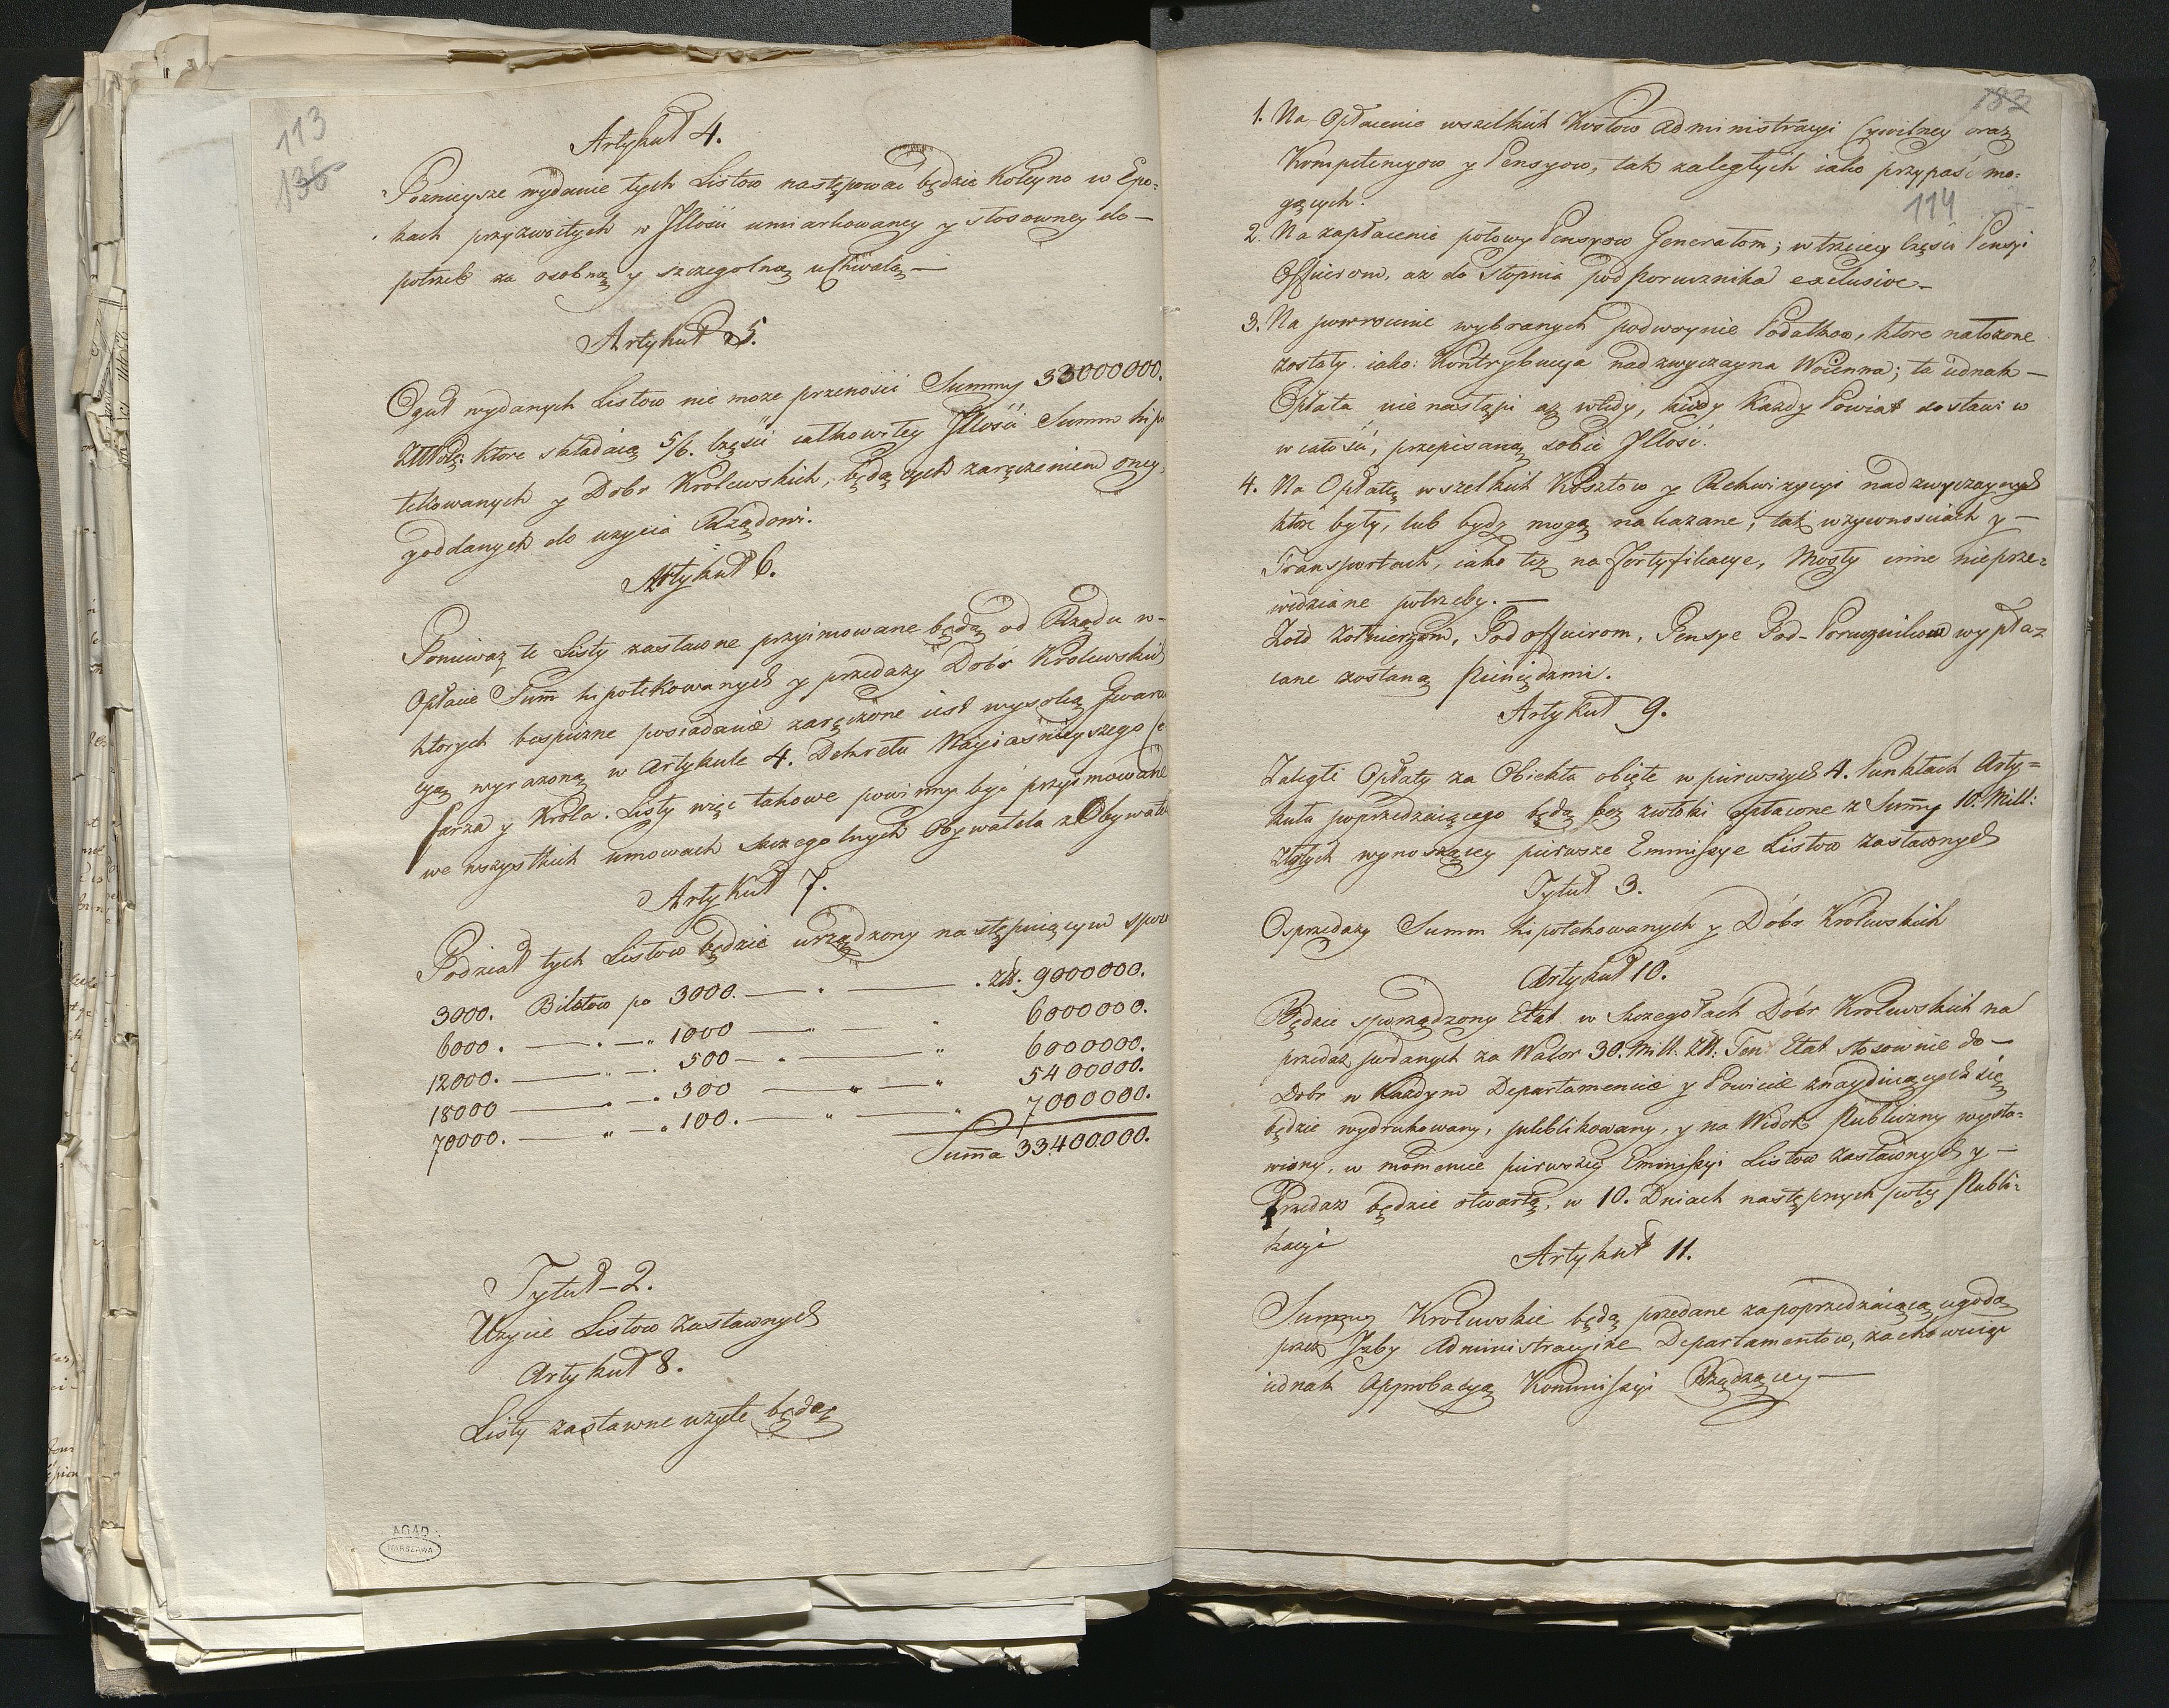 113
136
Artykuł 4.
Poznieysze wydanie tych Listow następować będzie koleyno w Epo-
kach przyzwoitych w Jllości umiarkowaney y stosowney do —
potrzeb za osobną y szczegolną uchwałą —
Artykuł 5.
Oguł wydanych Listow nie moze przenosić Summy 33000000.
które składaią 5/6. części całkowitey Jllości Summ hipo
tekowanych y Dobr Krolewskich, będących zaręczeniem onej
poddanych do uzycia Rządowi.
Artykuł 6.
Poniewaz te Listy zastawne przyimowane będą od Rządu w-
Opłacie Sum̄ hipotekowanych y przedazy Dobr Krolewskich
ktorych bespieczne posiadanie zaręczone iest wysoką Gwaran
cyą wyrazoną w Artykule 4. Dekretu Nayiaśnieyszego Ce
sarza y Krola. Listy więc takowe powinny być przyimowane
we wszystkich umowach szczegolnych Obywatela z Obywatel
Artykuł 7.
Podział tych Listow będzie urządzony następuiącym spos
3000. Biletow po 3000. — . — . zł: 9000000.
6000. — . — „ 1000 — „ „ 6000000.
12000. — „ — . 500 — . — „ 6000000.
18000 — „ — „ 300 — „ — „ 5400000.
70000. — „ — „ 100. — „ — „ 7000000.
Sum̄a 33400.000.
Tytuł — 2.
Uzycie Listow Zastawnych
Artykuł 8.
Listy zastawne uzyte będą
AGAD
WARSZAWA
183
1. Na Opłacenie wszelkich Kosztow Administracyi Cywilney oraz
Kompetencyow y Pensyow, tak zaległych iako przypaść mo-
gących.
114
2. Na zapłacenie połowy Pensyow Generałom; w trzeciey części Pensyi
Officierom, az do Stopnia podporucznika exclusive —
3. Na powrocenie wybranych podwoynie Podatkow, ktore nałozone
zostały iako: Kontrybucya nadzwyczayna Woienna; ta iednak —
Opłata nie nastąpi az wtedy, kiedy Kazdy Powiat dostawi w
w całości, przepisaną sobie Jllość.
4. Na Opłatę wszelkich Kosztow y Rekwizycyi nadzwyczaynych
ktore były, lub bydz mogą nakazane, tak w zywnościach y —
Transportach, iako tez na Fortyfikacye, Mosty inne nieprze-
widziane potrzeby. —
Zołd Zołnierzom, Podofficirom, Pensye Pod-Porucznikow wypła-
cane zostaną Pieniędzmi.
Artykuł 9.
Zaległe Opłaty za Obiekta obięte w pierwszych 4. Punktach Arty-
kułu poprzedzaiącego będą bez zwłoki opłacone z Sum̄y 10. Mill:
Złotych wynoszącey pierwsze Emmissye Listow Zastawnych
Tytuł 3.
O sprzedazy Summ hipotekowanych y Dóbr Krolewskich
Artykuł 10.
Będzie sporządzony Etat w Szczegołach Dóbr Krolewskich na
przedaz podanych za Walor 30. Mill: Zł: Ten Etat stosownie do —
Dobr w Kazdym Departamencie y Powiecie znayduiących się
będzie wydrukowany, publikowany, y na Widok Publiczny wysta-
wiony, w momencie pierwszey Emmissyi Listow Zastawnych y —
Przedaz będzie otwartą, w 10. Dniach następnych po tey Publi-
kacyi
Artykuł 11.
Summy Krolewskie będą przedane za poprzedzaiącą ugodą
przez Jzby Administracyine Departamentow, zachowuiąc
iednak Approbacyą Kommissyi Rządzącey —